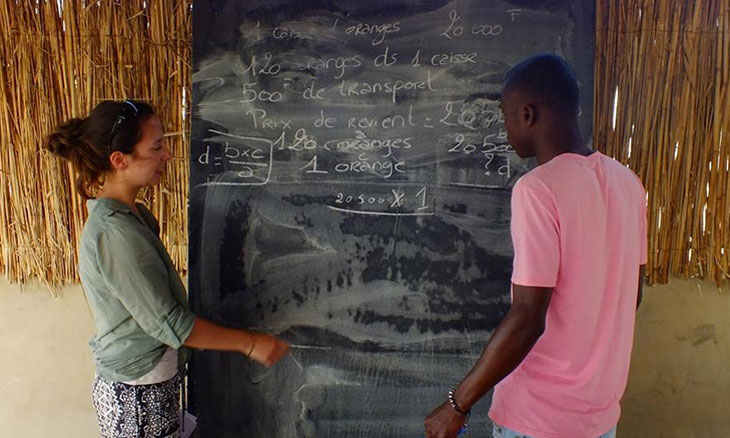 1 oranges 20 000 F
120 oranges ds 1 caisse
500 F de transport
Prix de revient = 20
120 oranges 20 5
d = b x c / a 1 orange ? d
20 5000 X 1